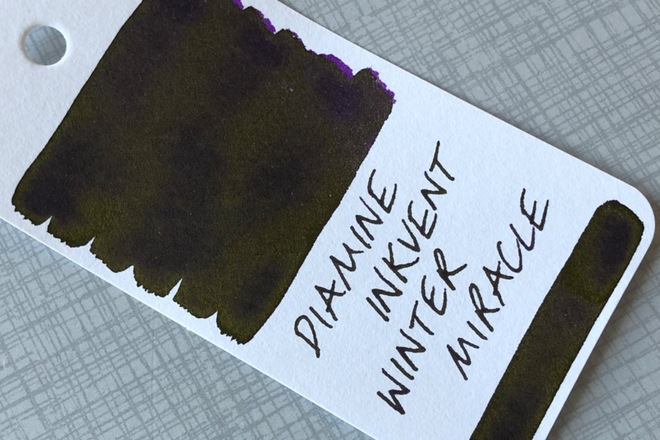 DIAMINE
INKVENT
WINTER
MIRACLE